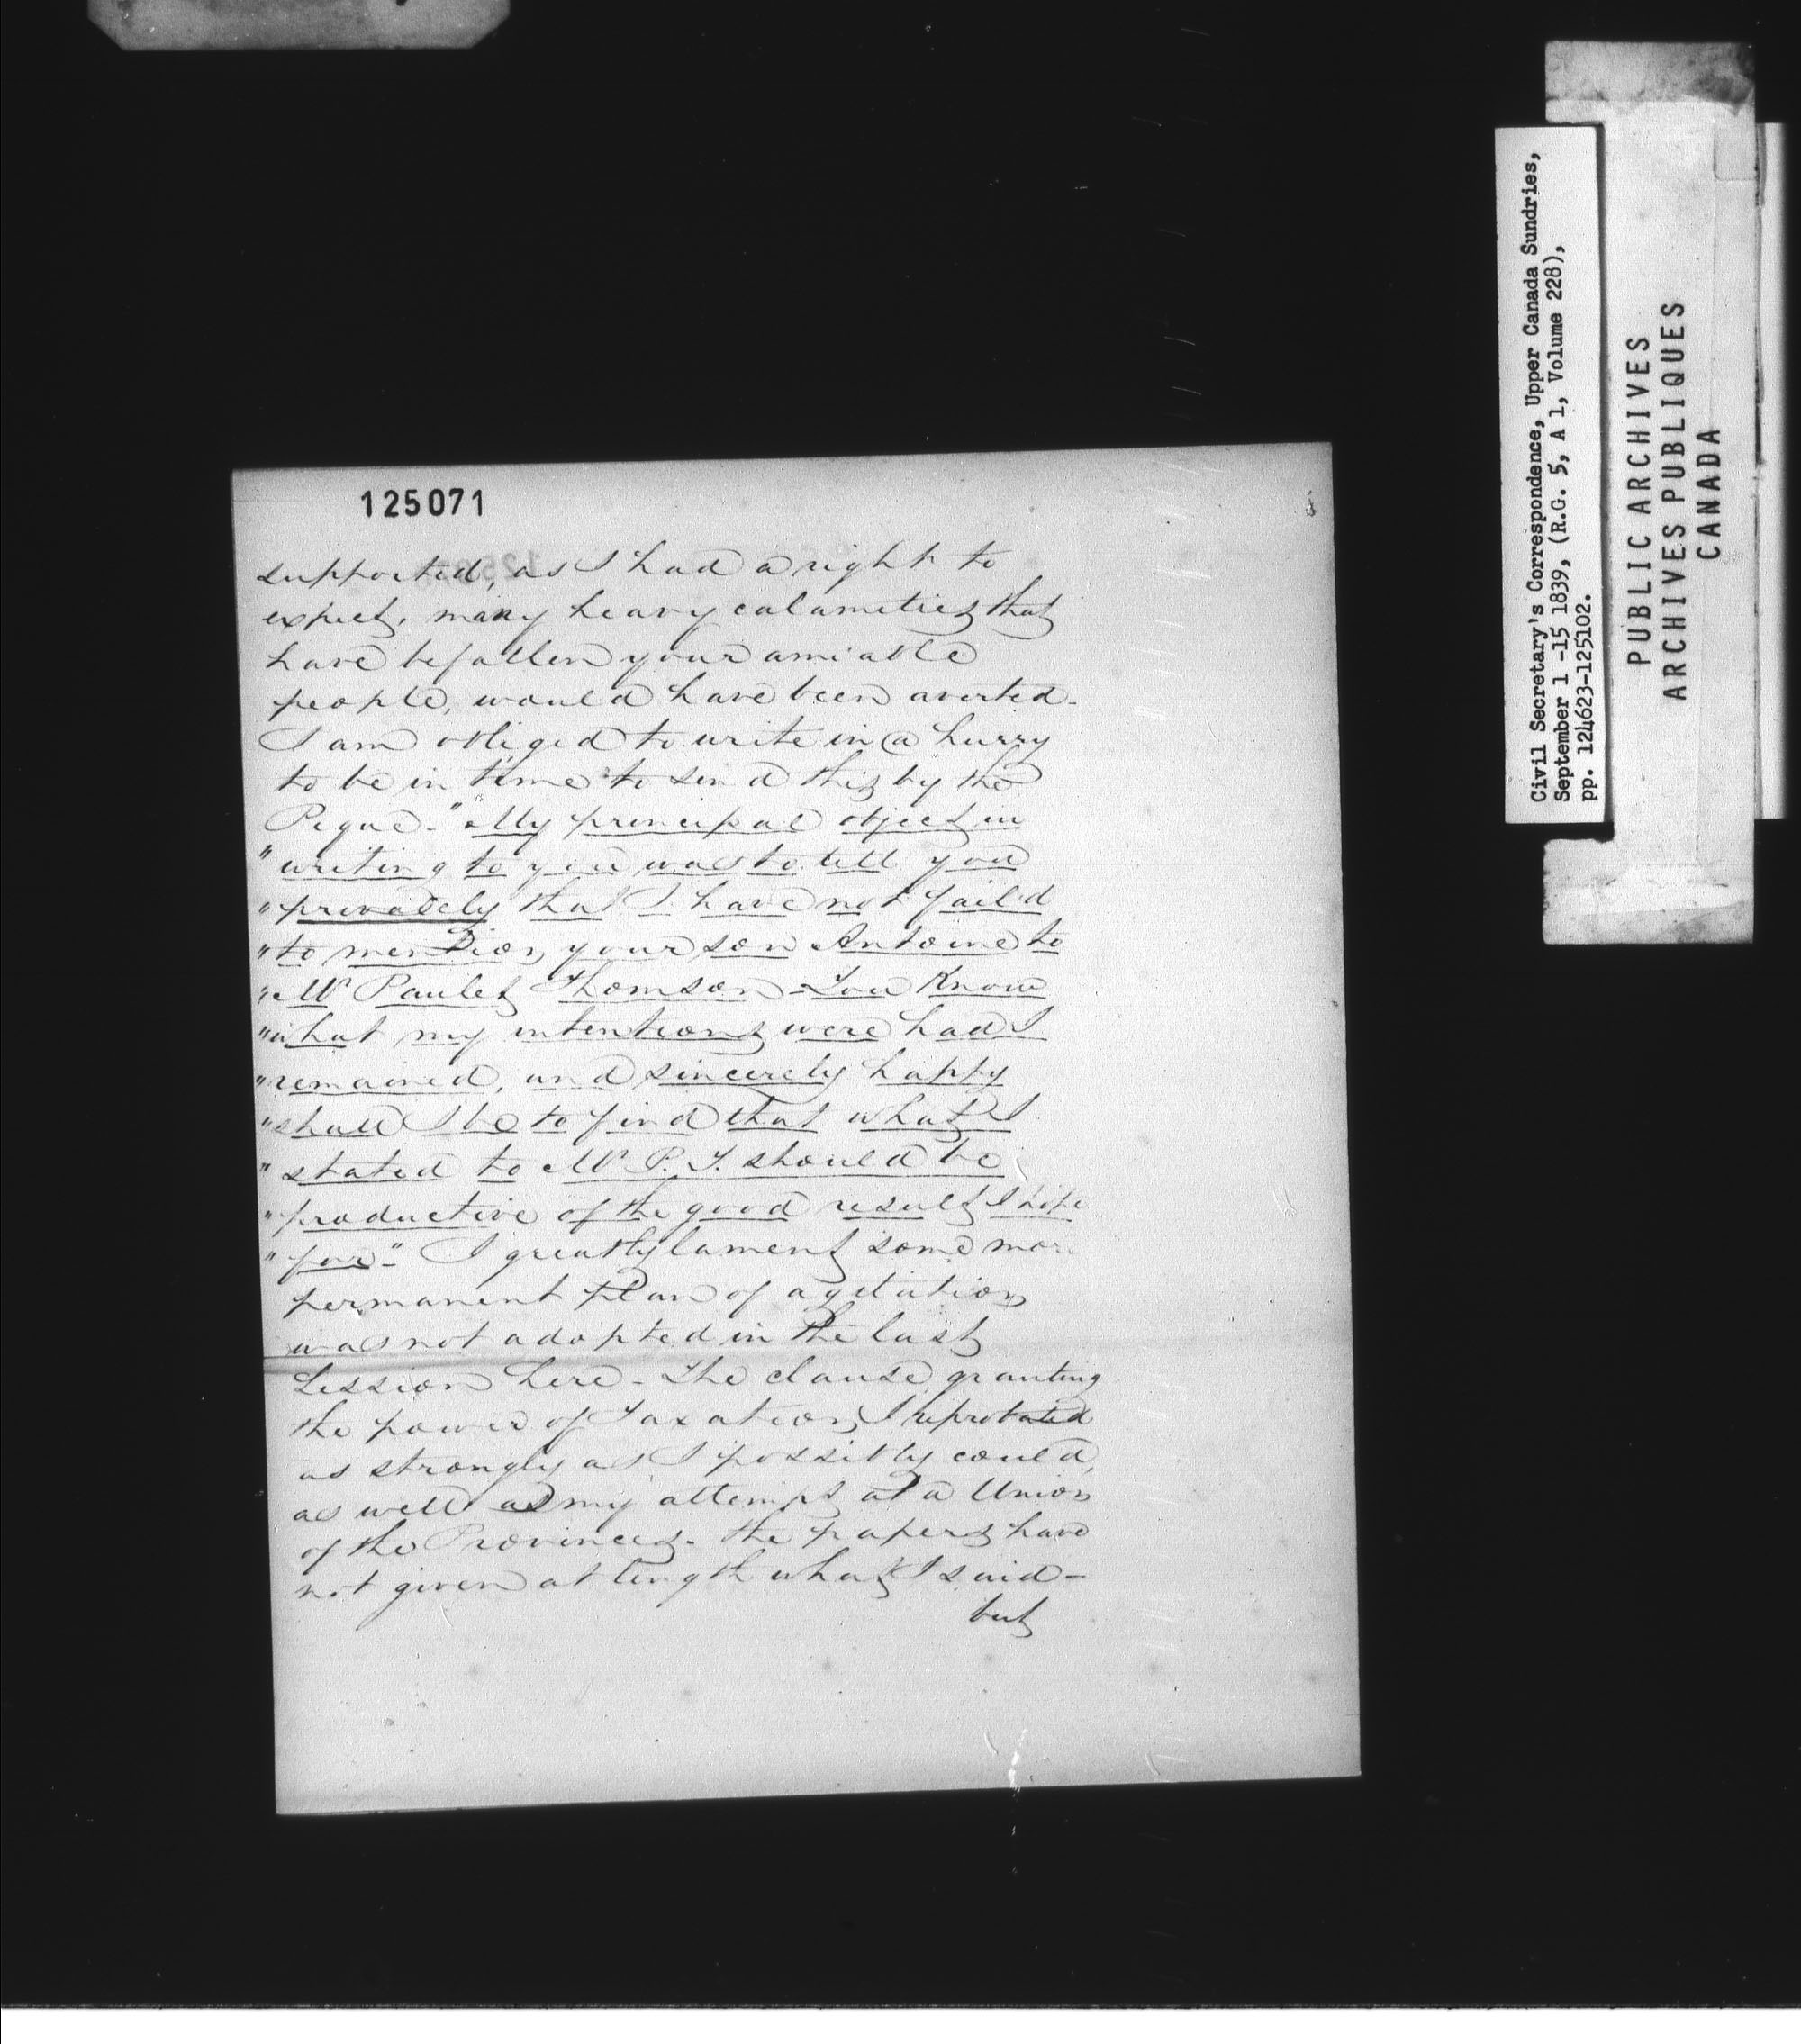 125071
supported, as I had a right to
expect, many heavy calameties that
have befallen your amiable
people, would have been averted.
I am obliged to write in a hurry
to be in time to send this by the
Pique - "My principal object in
"writing to you was to tell you
"privately that I have not fail'd
"to mention your son Antoine to
"Mr Paulet Thomson - You know
"what my intentions were had I
"remained, and sincerely happy
"shall I be to find that what I
"stated to Mr P. T. should be
"productive of the good result I hope
"for" - I greatly lament some more
permanent plan of agitation
was not adopted in the last
Session here - The clause granting
the power of Taxation I reprobated
as strongly as I possibly could,
as well as my attempt at a Union
of the Provinces - the papers have
not given at length what I said -
but
Civil Secretary's Correspondence, Upper Canada Sundries,
September 1 -15 1839, (R.G. 5, A 1, Volume 228),
pp. 124623-125102.
PUBLIC ARCHIVES
ARCHIVES PUBLIQUES
CANADA